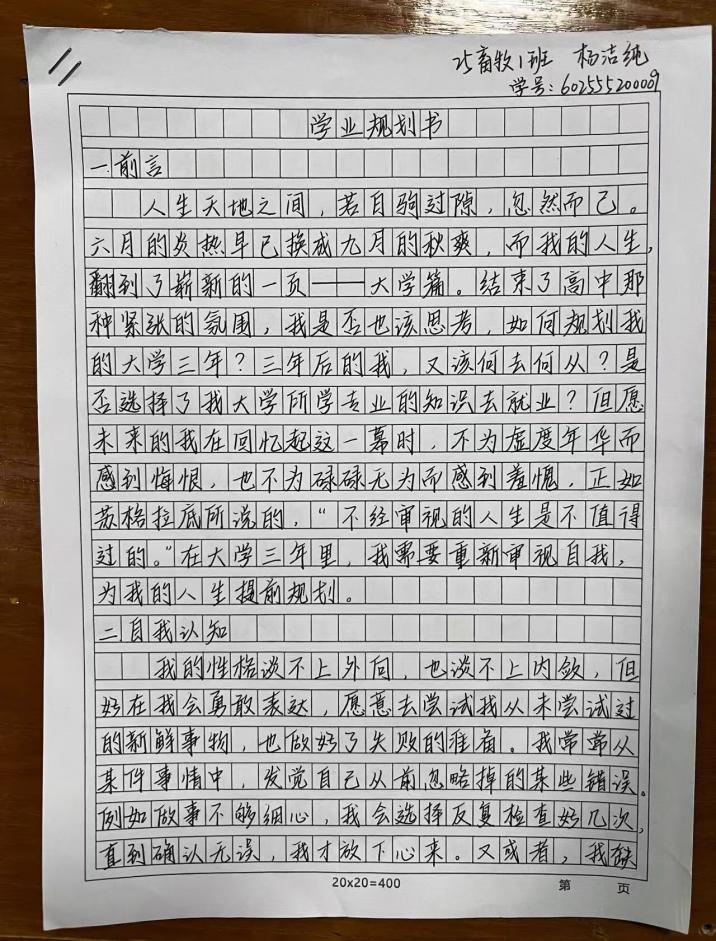 25畜牧1班 杨洁纯
学号:602555200009
学业规划书
一前言
人生天地之间,若白驹过隙,忽然而已。
六月的炎热早已换成九月的秋爽,而我的人生,
翻到了崭新的一页——大学篇。结束了高中那
种紧张的氛围,我是否也该思考,如何规划我
的大学三年?三年后的我,又该何去何从?是
否选择了我大学所学专业的知识去就业?但愿
未来的我在回忆起这一幕时,不为虚度年华而
感到悔恨,也不为碌碌无为而感到羞愧,正如
苏格拉底所说的,“不经审视的人生是不值得
过的。”在大学三年里,我需要重新审视自我,
为我的人生提前规划。
二自我认知
我的性格谈不上外向,也谈不上内敛,但
好在我会勇敢表达,愿意去尝试我从未尝试过
的新鲜事物,也做好了失败的准备。我常常从
某件事情中,发觉自己从前忽略掉的某些错误。
例如做事不够细心,我会选择反复检查好几次,
直到确认无误,我才放下心来。又或者,我缺
20x20=400 第 页